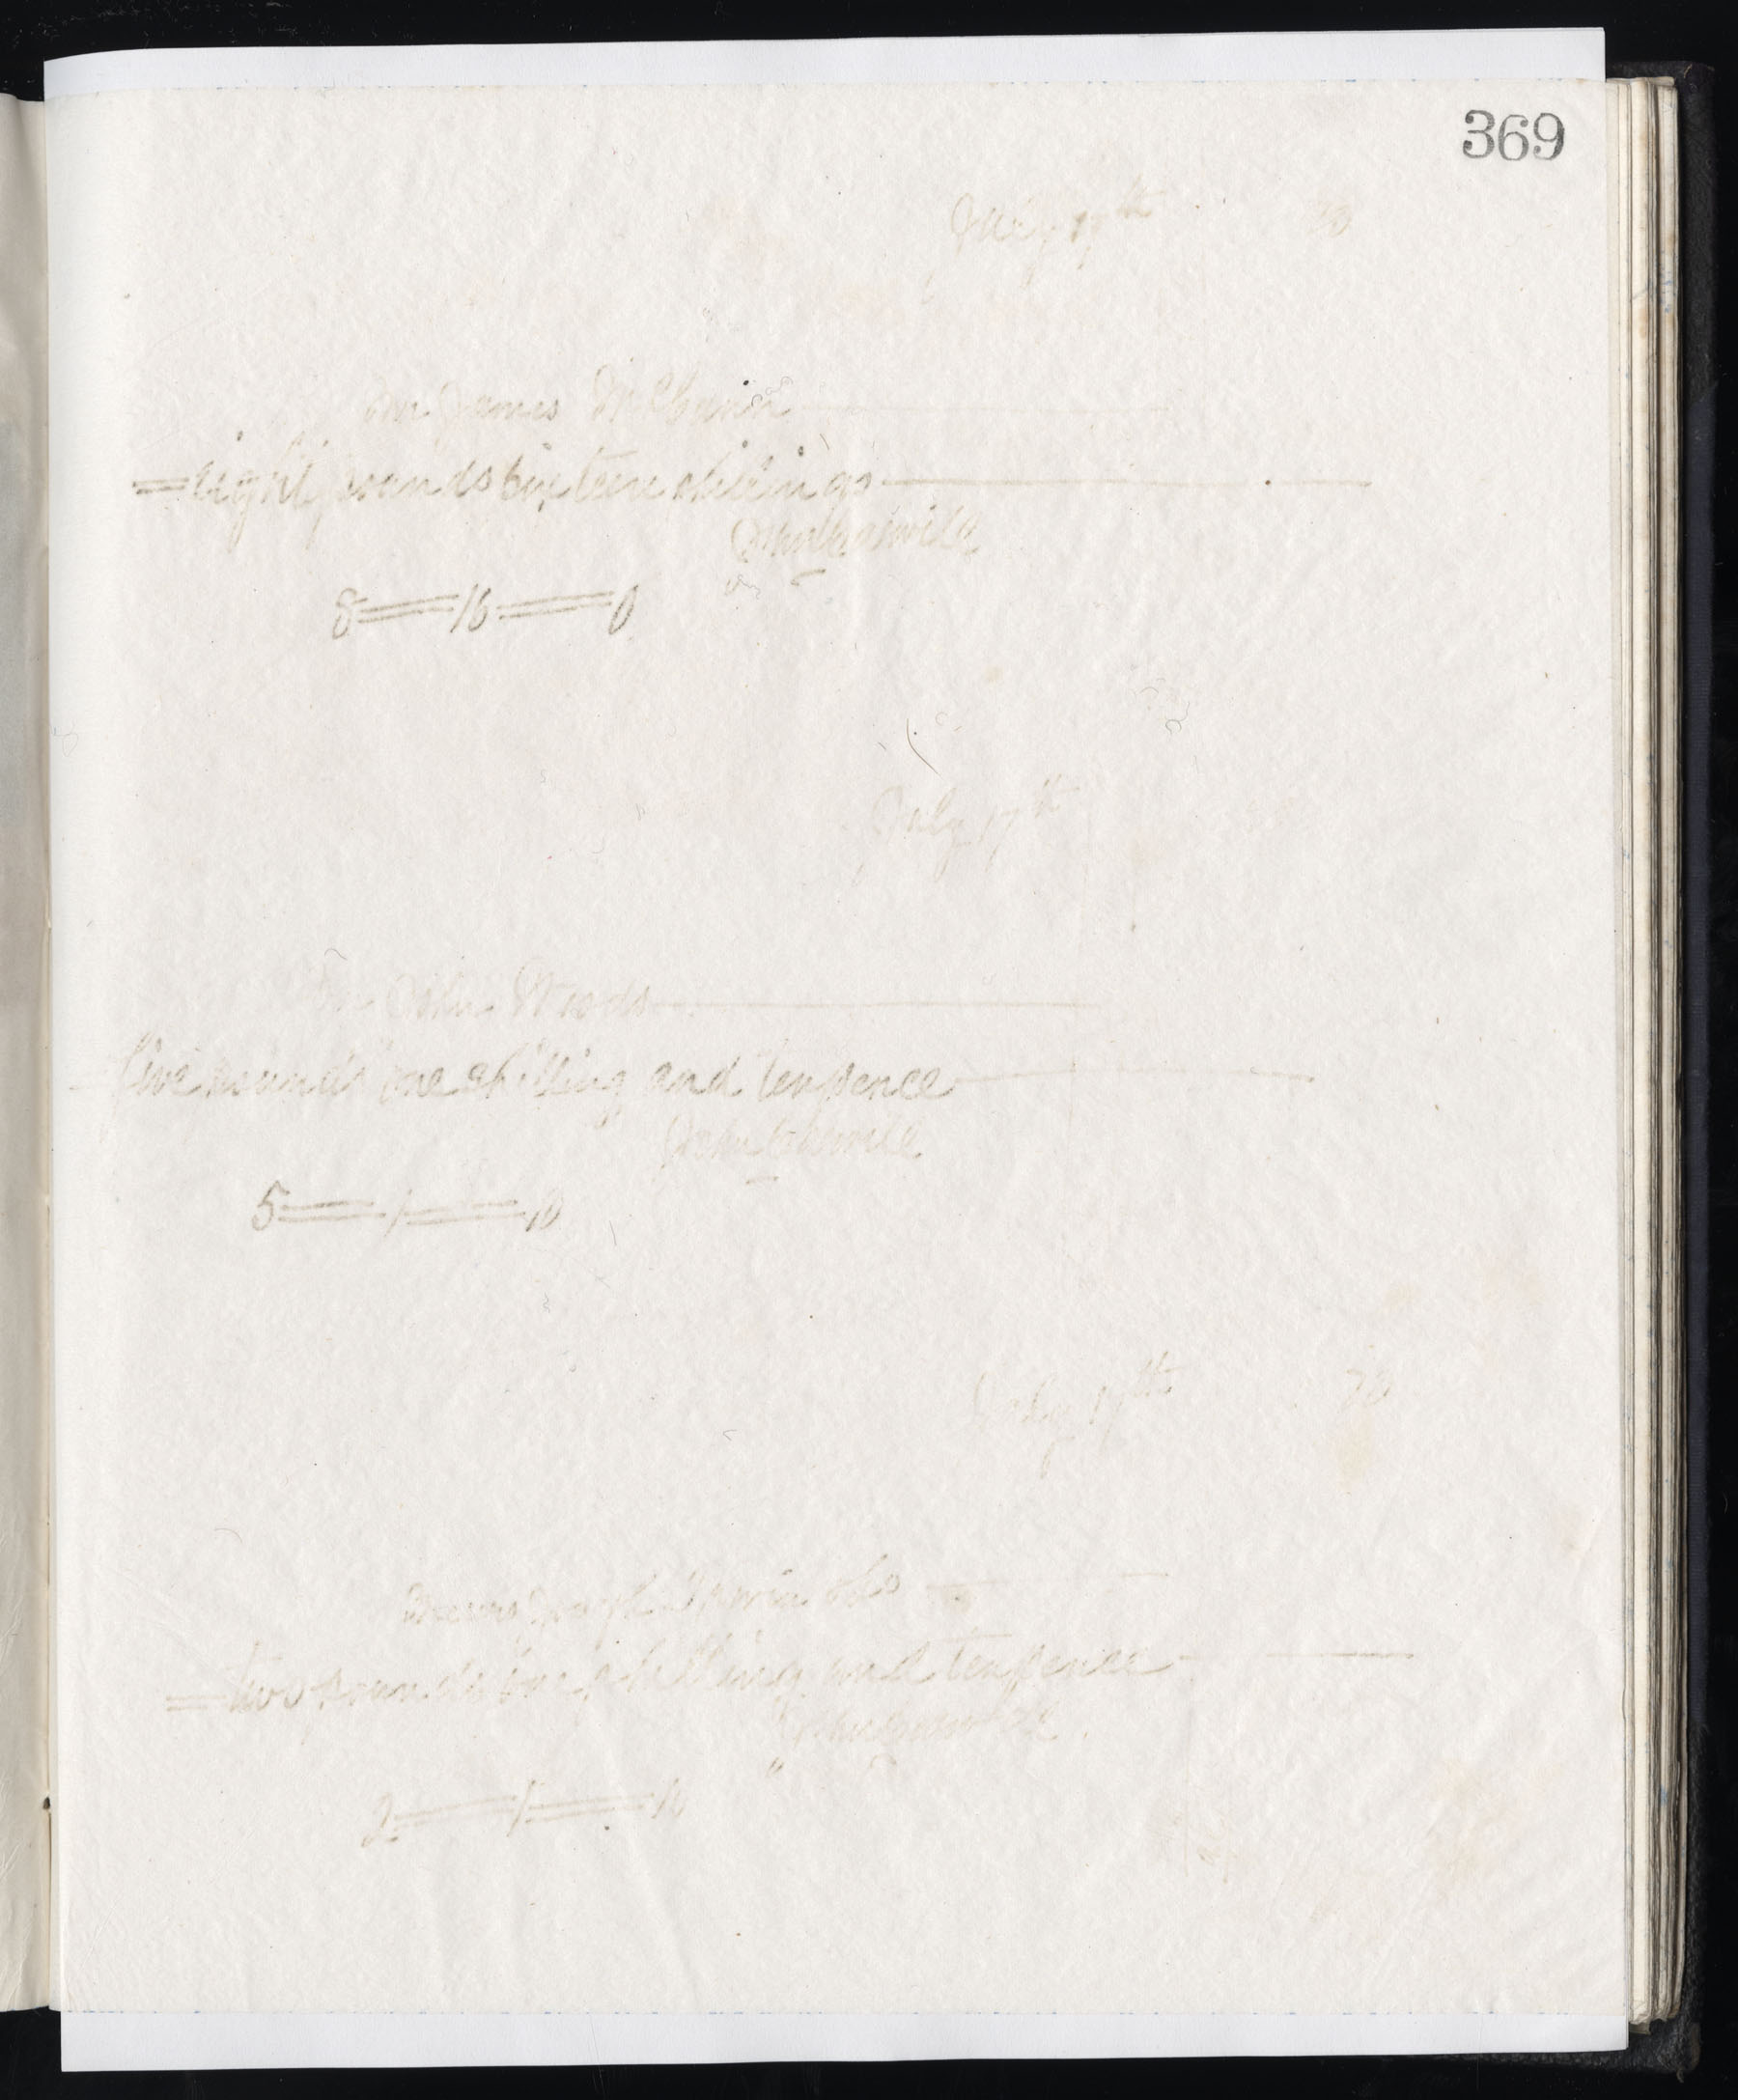 369
July 17th
Mr James McCunn
eight pounds sixteen shillings
8 16 0
July 17th
Mr John Woods
five pounds one shilling and tenpence
John
5 1 10
July 17th 78
Messrs Joseph
two pounds one shilling and tenpence
2 1 10